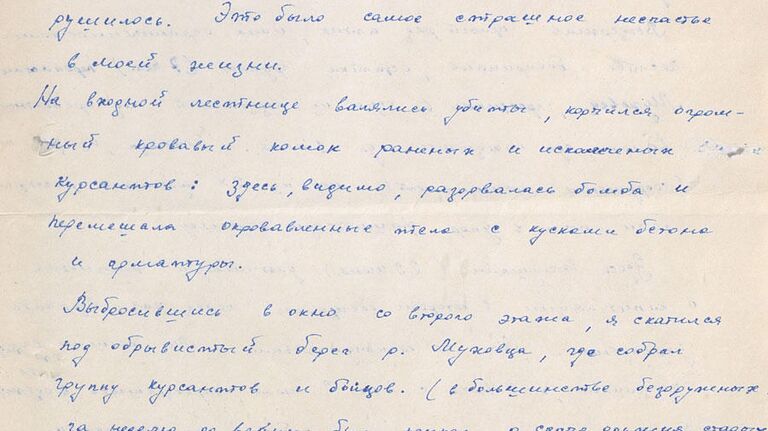 рушилось. Это было самое страшное несчастье
в моей жизни.
На входной лестнице валялись убиты, корчился огром-
ный кровавый комок раненых и искалеченых
курсантов: здесь, видимо, разорвалась бомба и
перемешала окровавленные тела с кусками бетона
и арматуры.
Выбросившись в окно со второго этажа, я скатился
под обрывистый берег р. Муховца, где собрал
группу курсантов и бойцов. (в большинстве безоружных,
за неделю до